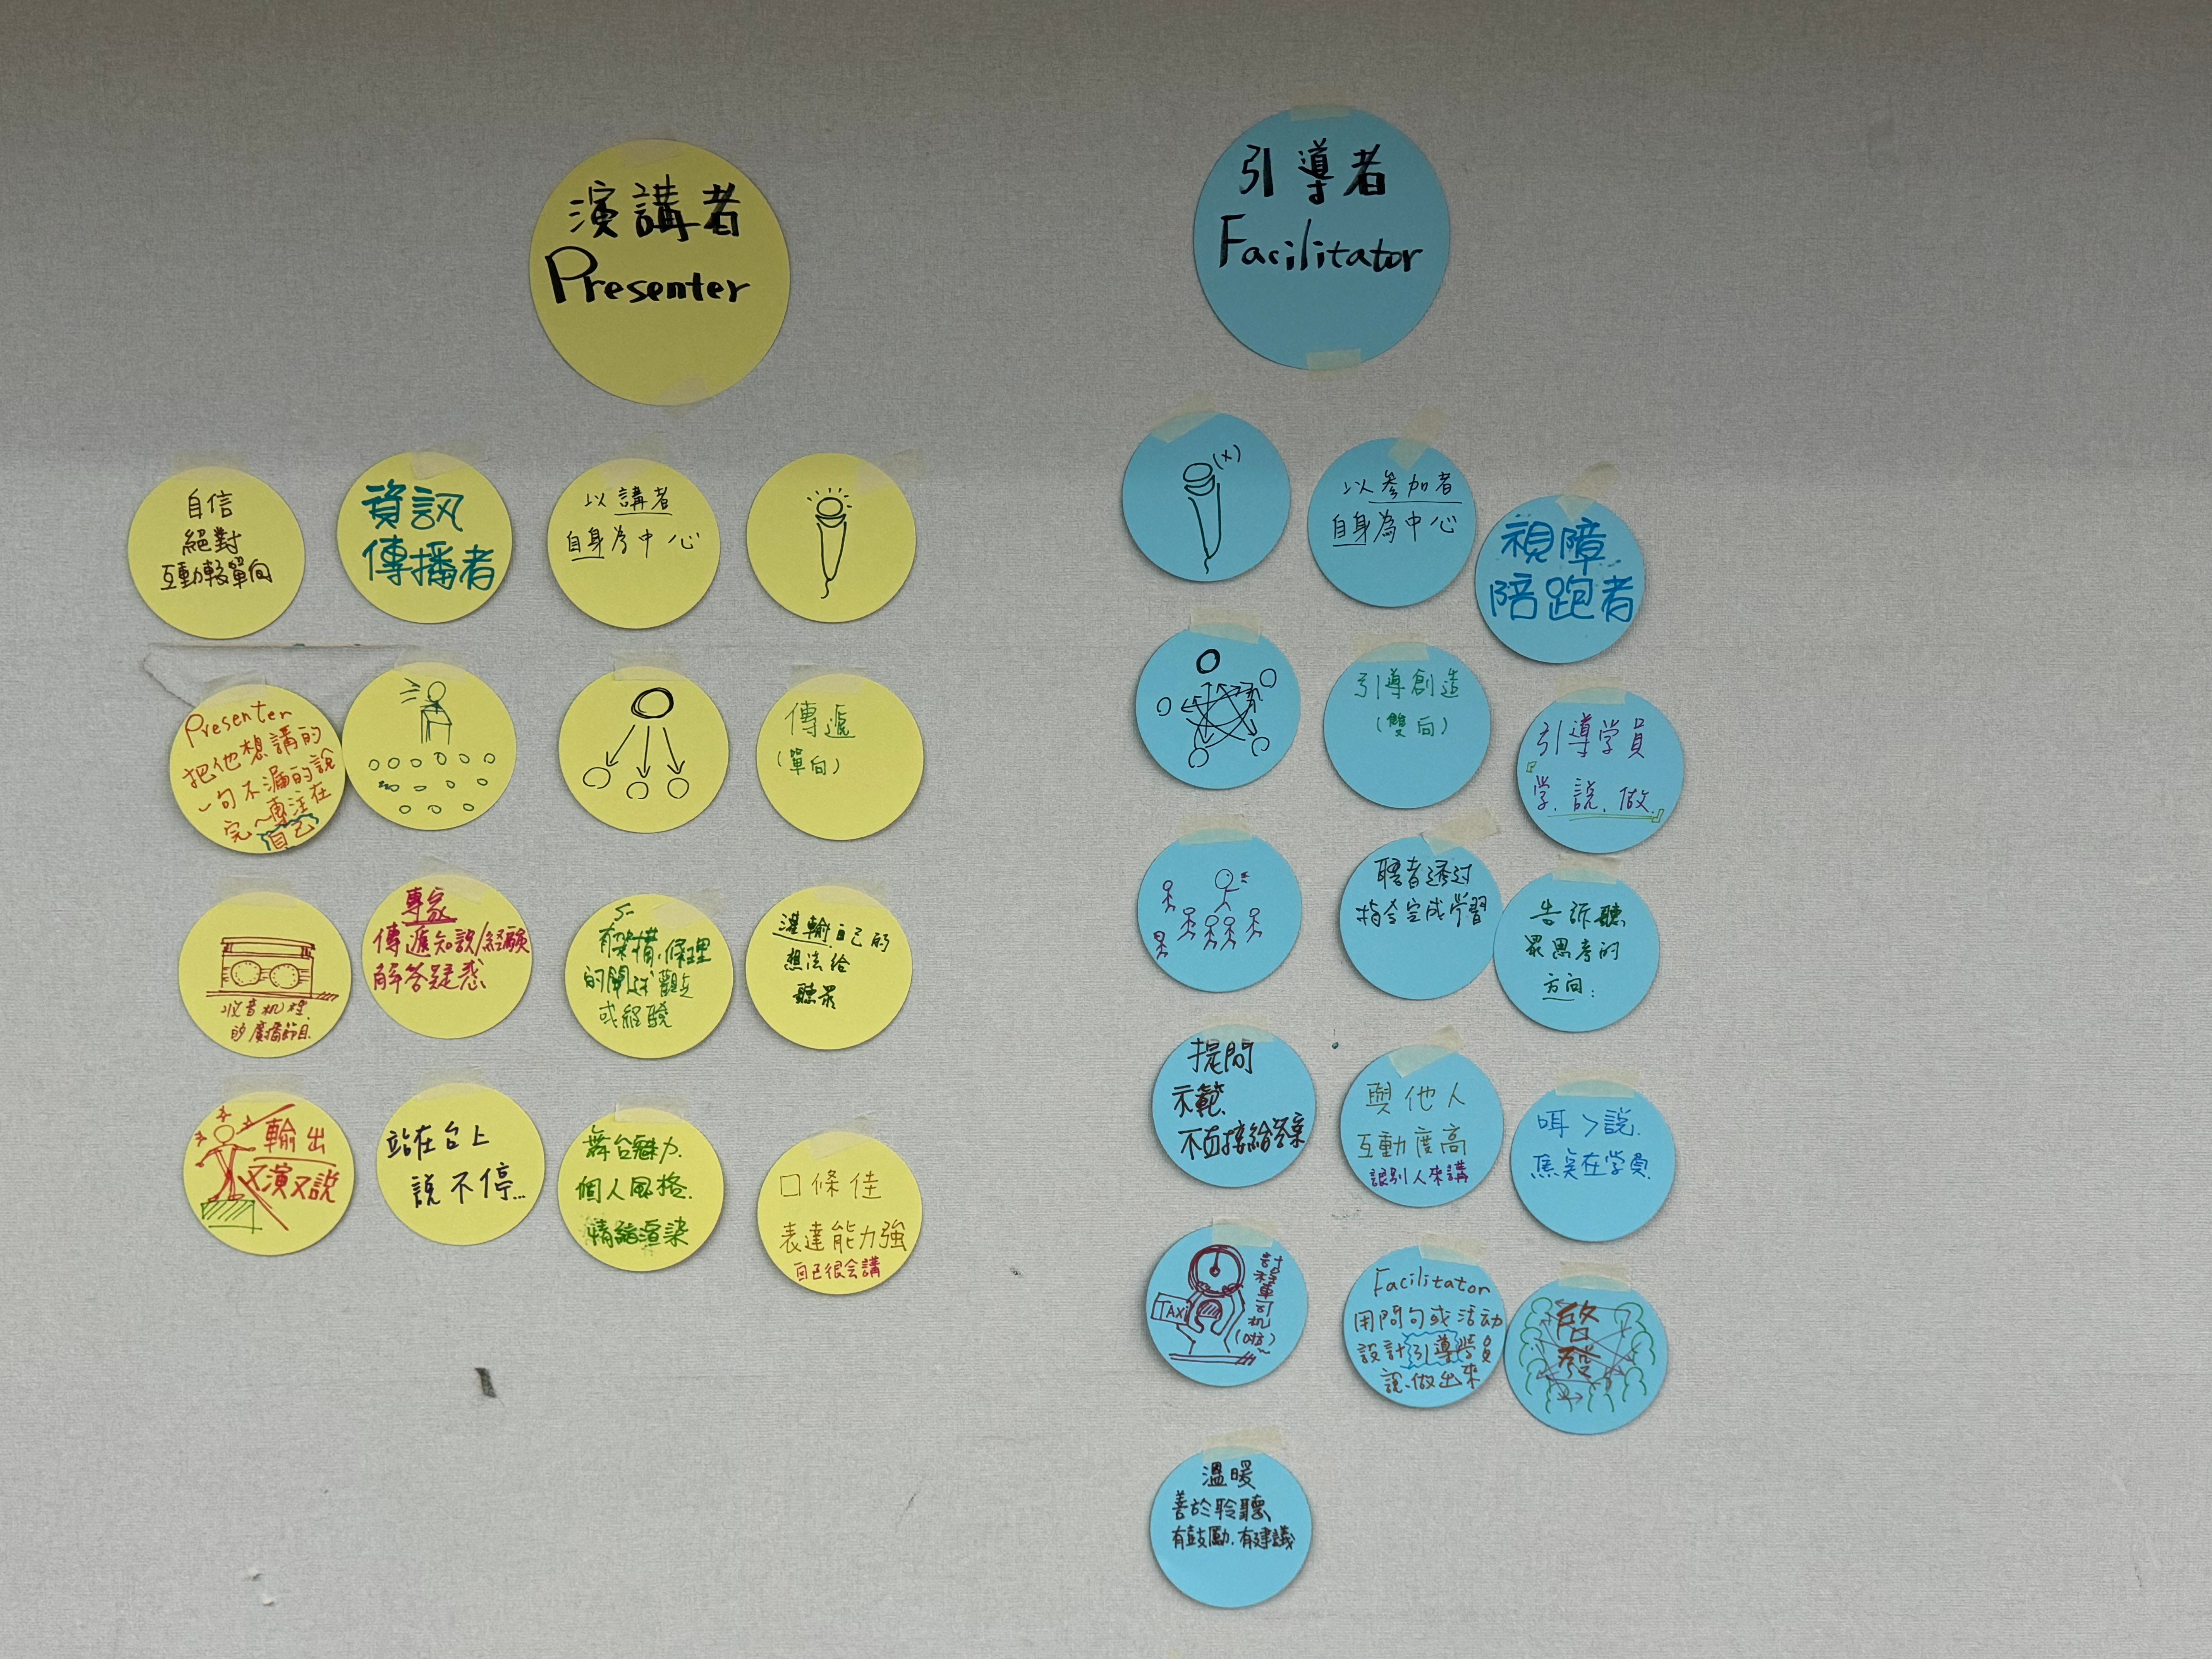 演講者
Presenter
自信
絕對
互動較單向
資訊
傳播者
以講者
自身為中心
Presenter
把他想講的
一句不漏的說
完~專注在
自己
傳遞
(單向)
收音机裡
的廣播節目
專家
傳遞知識/経験
解答疑惑
有架構、條理
的 觀点
或經驗
灌輸自己的
想法給
聽眾
輸出
又演又說
站在台上
說不停...
舞台魅力.
個人風格.
情緒渲染
口條佳
表達能力強
自己很会講
引導者
Facilitator
(x)
以參加者
自身為中心
視障
陪跑者
引導創造
(雙向)
引導学員
學.說.做.
聽者透过
指令完成學習
告訴聽
眾思考的
方向:
提問
示範.
不直接給答案
與他人
互動度高
讓別人來講
說.
焦点在学員.
TAXi
計程車司机
Facilitator
用問句或活动
設計引導学員
說、做出來
啓
發
溫暖
善於聆聽
有鼓勵.有建議